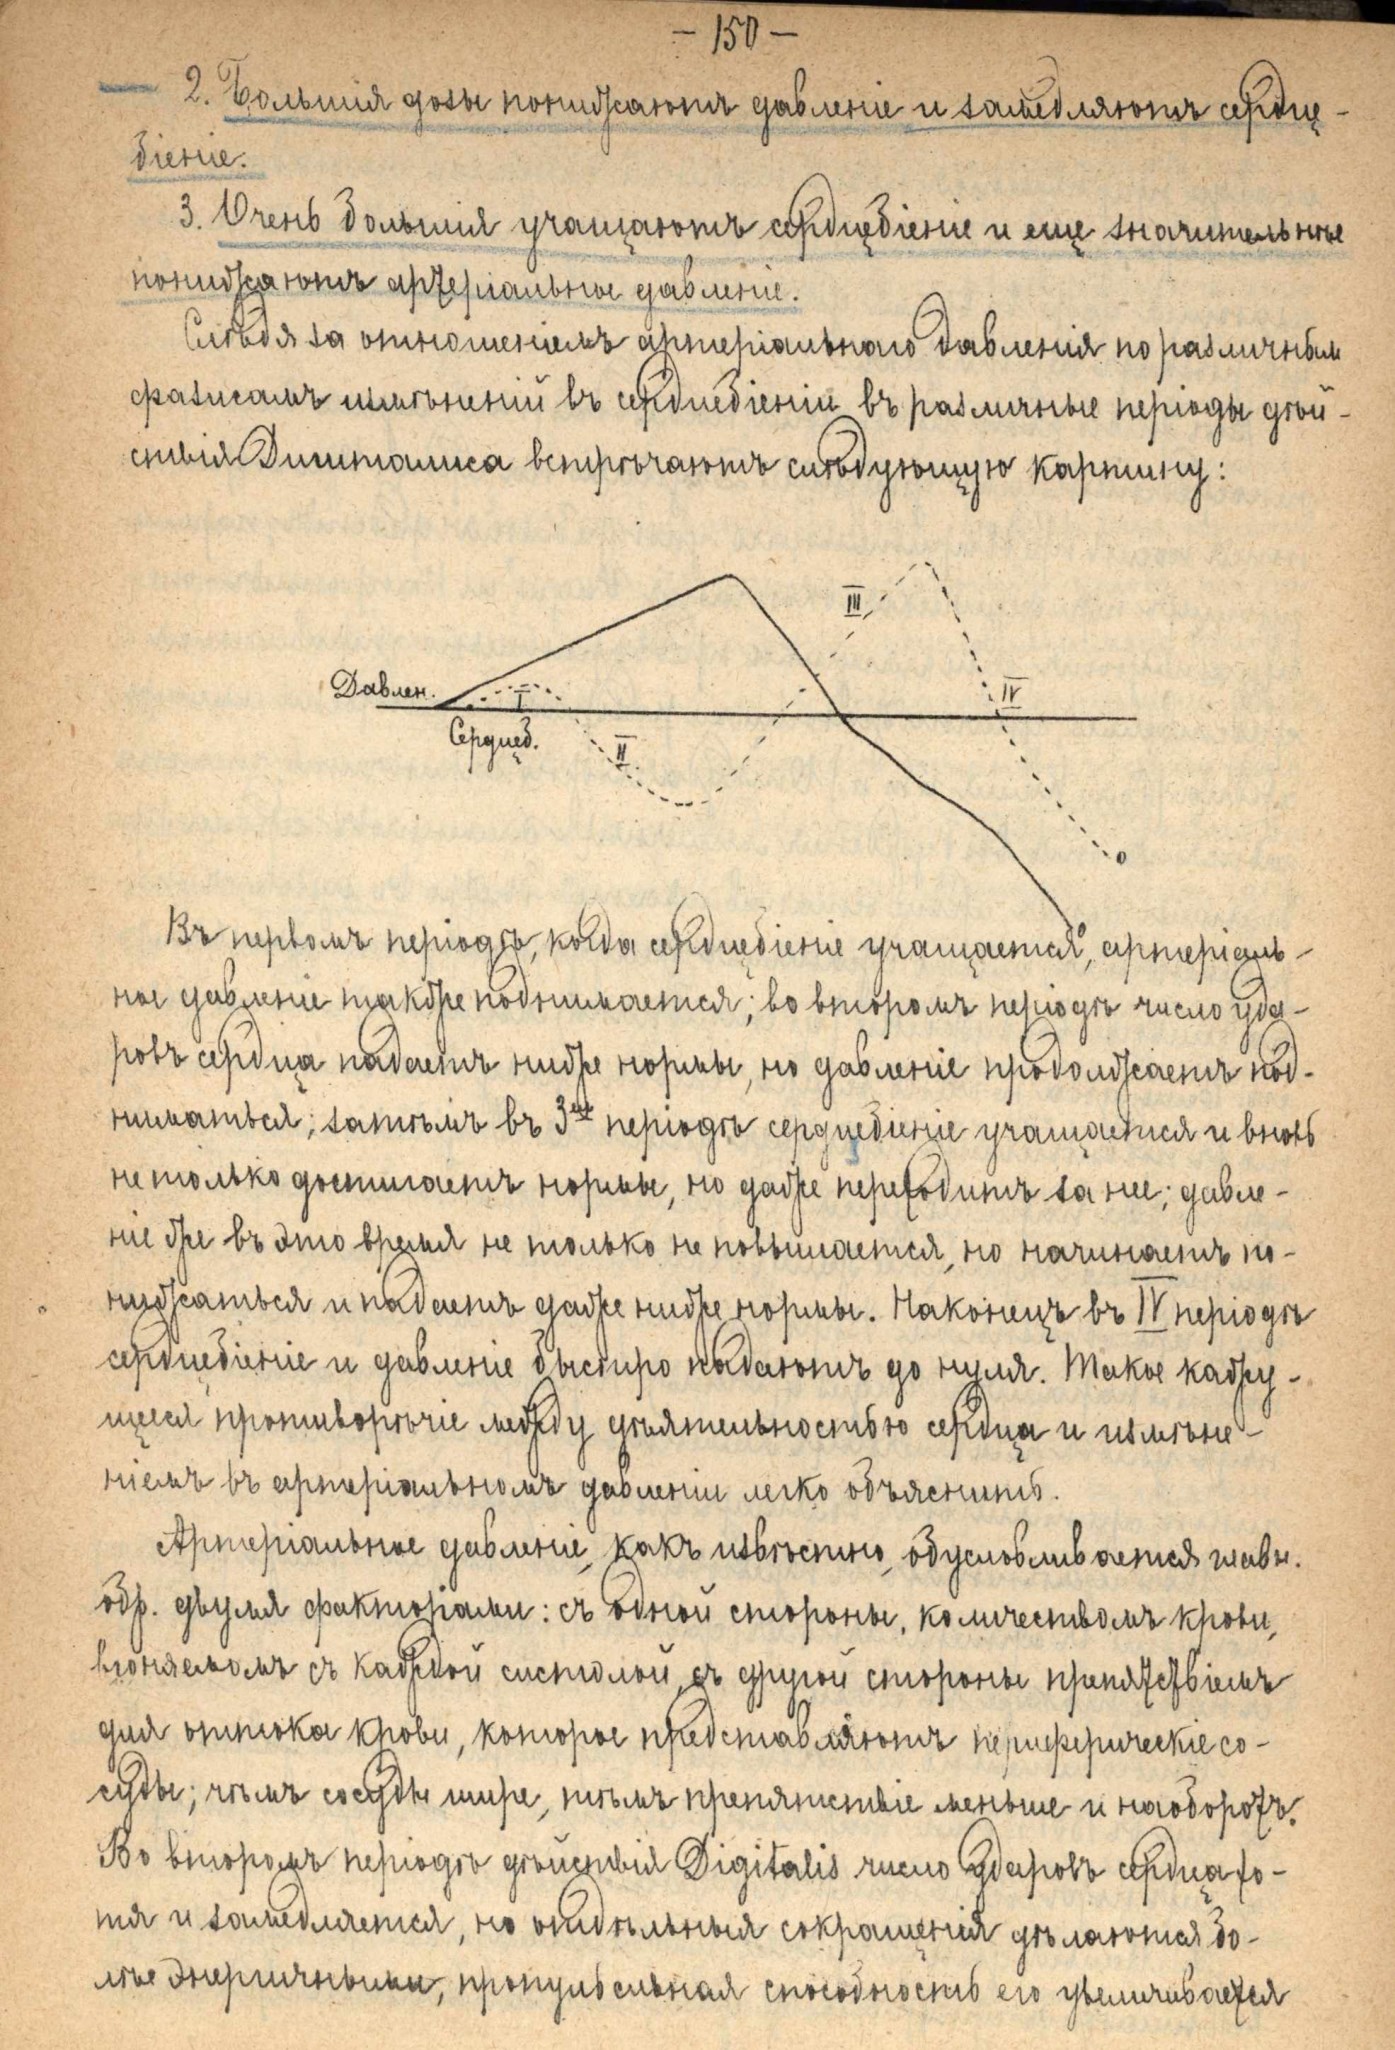 — 150 —
2. Большія дозы понижаютъ давленіе и замедляютъ сердце-
біеніе.
3. Очень большія учащаютъ сердцебіеніе и еще значительнѣе
понижаютъ артеріальное давленіе.
Слѣдя за отношеніемъ артеріальнаго давленія по различнымъ
фазисамъ измѣненій въ сердцебіеніи въ различные періоды дѣй-
ствія Дигиталиса встрѣчаютъ слѣдующую картину:
III
Давлен.
I
IV
Сердцеб.
II
0
0
Въ первомъ періодѣ, когда сердцебіеніе учащается, артеріаль-
ное давленіе также поднимается; во второмъ періодѣ число уда-
ровъ сердца падаетъ ниже нормы, но давленіе продолжаетъ под-
ниматься; затѣмъ въ 3мъ періодѣ сердцебіеніе учащается и вновь
не только достигаетъ нормы, но даже переходитъ за нее; давле-
ніе же въ это время не только не повышается, но начинаетъ по-
нижаться и падаетъ даже ниже нормы. Наконецъ въ IV періодѣ
сердцебіеніе и давленіе быстро падаютъ до нуля. Такое кажу-
щееся противорѣчіе между дѣятельностью сердца и измѣне-
ніемъ въ артеріальномъ давленіи легко объяснить.
Артеріальное давленіе, какъ извѣстно, обусловливается главн.
обр. двумя факторами: съ одной стороны, количествомъ крови,
вгоняемомъ съ каждой систолой, съ другой стороны препятствіемъ
для оттока крови, которое представляютъ периферическіе со-
суды; чѣмъ сосуды шире, тѣмъ препятствіе меньше и наоборотъ.
Во второмъ періодѣ дѣйствія Digitalis число ударовъ сердца хо-
тя и замедляется, но отдѣльныя сокращенія дѣлаются бо-
лѣе энергичными, пропульсивная способность его увеличивается